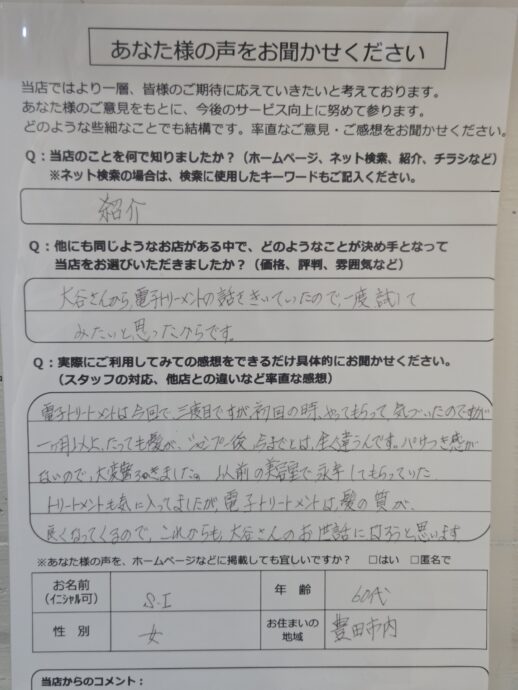 あなた様の声をお聞かせください
当店ではより一層、皆様のご期待に応えていきたいと考えております。
あなた様のご意見をもとに、今後のサービス向上に努めて参ります。
どのような些細なことでも結構です。率直なご意見・ご感想をお聞かせください。
Q：当店のことを何で知りましたか？（ホームページ、ネット検索、紹介、チラシなど）
※ネット検索の場合は、検索に使用したキーワードもご記入ください。
紹介
Q：他にも同じようなお店がある中で、どのようなことが決め手となって
当店をお選びいただきましたか？（価格、評判、雰囲気など）
大谷さんから、電子トリーメントの話をきいていたので、一度試して
みたいと思ったからです。
Q：実際にご利用してみての感想をできるだけ具体的にお聞かせください。
（スタッフの対応、他店との違いなど率直な感想）
電子トリートメントは今回で、三度目ですが、初回の時、やってもらって、気づいたのですが
一ヶ月以上、たっても髪が、シャンプー後、今までとは、全く違うんです。パサつき感が
ないので、大変驚きました。以前の美容室で永年してもらっていた
トリートメントも気に入ってましたが、電子トリートメントは、髪の質が、
良くなってくるので、これからも、大谷さんのお世話になろうと思います
※あなた様の声を、ホームページなどに掲載しても宜しいですか？ □はい □匿名で
お名前 S.I 年 齢 60代
（イニシャル可）
性 別 女 お住まいの地域 豊田市内
当店からのコメント：